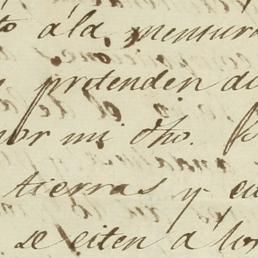 to á la mensura
pretenden
por mi dho.
tierras y
se citen á los